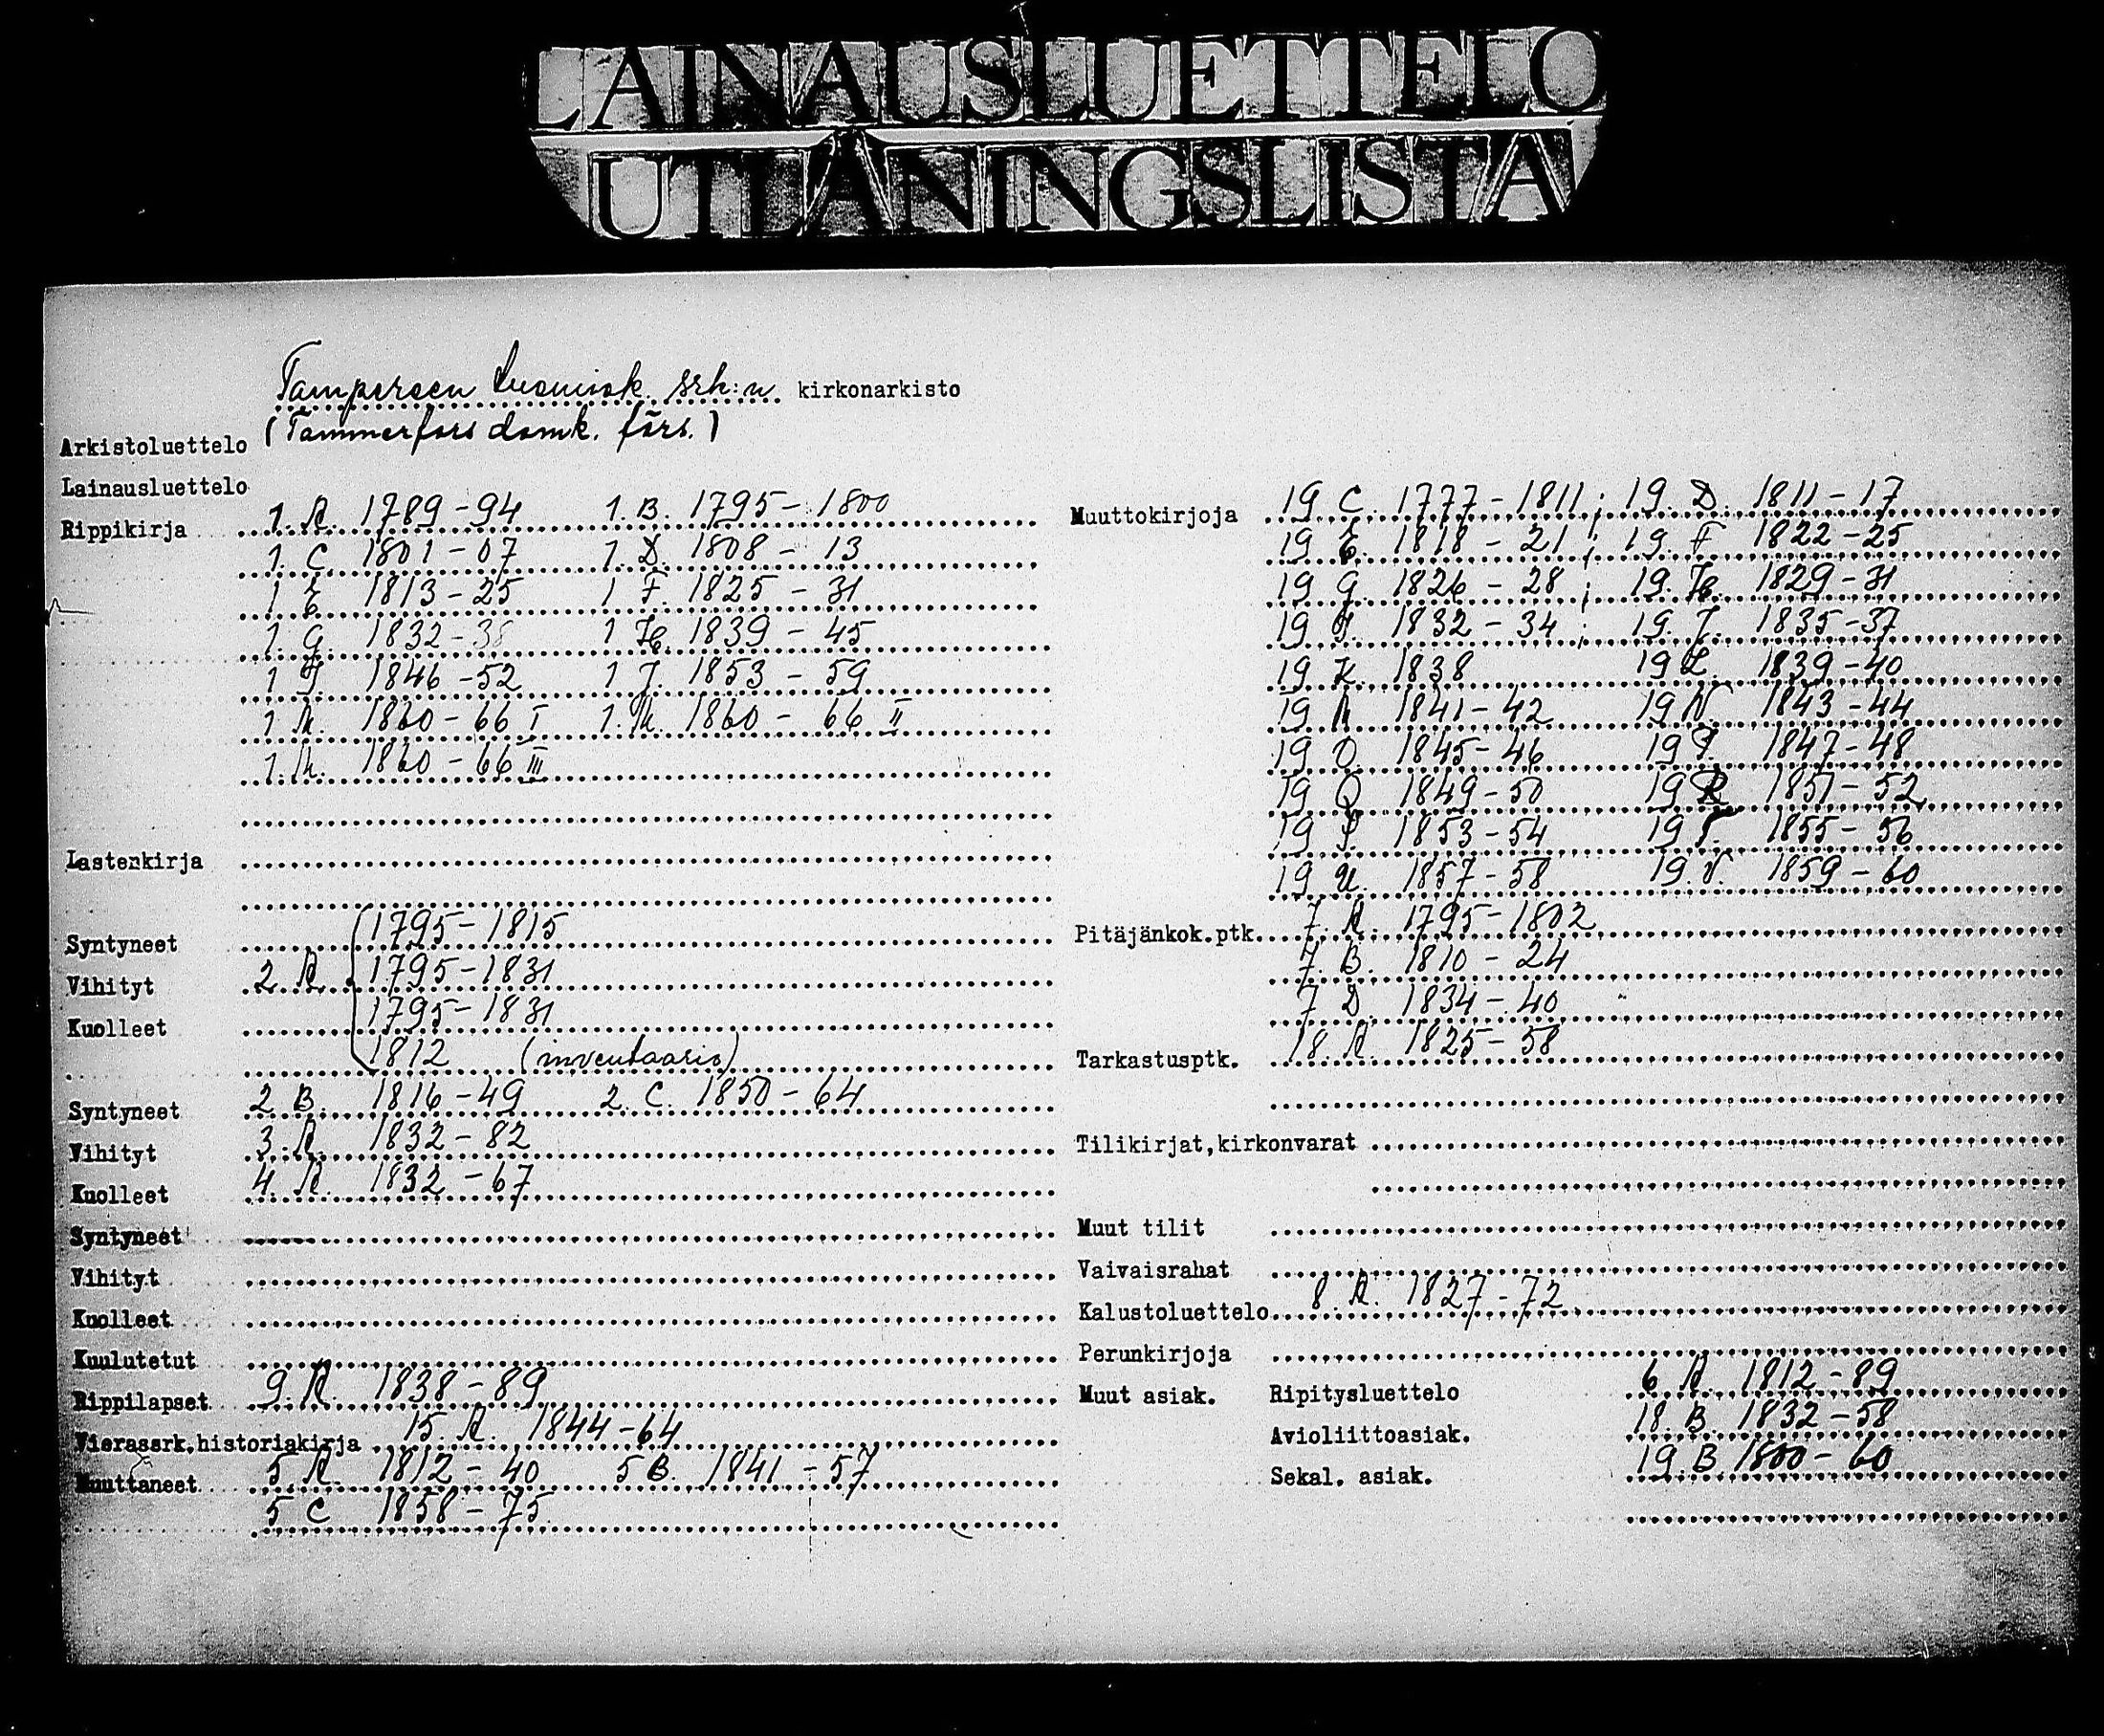 LAINAUSLUETTELO
UTLÅNINGSLISTA
Tampereen tuomiok. srk:n kirkonarkisto
Arkistoluettelo (Tammerfors domk. förs.)
Lainausluettelo
Rippikirja 1. A. 1789-94 1. B. 1795-1800
1. C. 1801-07 1. D. 1808-13
1 E 1813-25 1 F. 1825-31
1. G. 1832-38 1 H. 1839-45
1 I. 1846-52 1 J. 1853-59
1. K. 1860-66 I 1. K. 1860-66 II
1. K. 1860-66 III
Lastenkirja
Syntyneet 1795-1815
Vihityt 2 A. 1795-1831
Kuolleet 1795-1831
1812 (inventaario)
Syntyneet 2 B. 1816-49 2. C. 1850-64
Vihityt 3. A. 1832-82
Kuolleet 4. A. 1832-67
Syntyneet
Vihityt
Kuolleet
Kuulutetut
Rippilapset 9. A. 1838-89
Vierassrk.historiakirja 15. A. 1844-64
Muuttaneet 5 A. 1812-40 5 B. 1841-57
5 C 1858-75
Muuttokirjoja 19 C. 1777-1811; 19. D. 1811-17
19 E. 1818-21; 19. F 1822-25
19 G. 1826-28; 19. H. 1829-31
19 I. 1832-34; 19. J. 1835-37
19 K. 1838 19 L. 1839-40
19 M 1841-42 19 N. 1843-44
19 O. 1845-46 19 P. 1847-48
19 Q 1849-50 19 R 1851-52
19 S. 1853-54 19 T. 1855-56
19 U. 1857-58 19. V. 1859-60
Pitäjänkok.ptk. 7. A. 1795-1802
7. B. 1810-24
7 D. 1834-40
Tarkastusptk. 18. A. 1825-58
Tilikirjat,kirkonvarat
Muut tilit
Vaivaisrahat
Kalustoluettelo 8. A. 1827-72
Perunkirjoja
Muut asiak. Ripitysluettelo 6 A. 1812-89
Avioliittoasiak. 18. B. 1832-58
Sekal. asiak. 19 B 1800-60